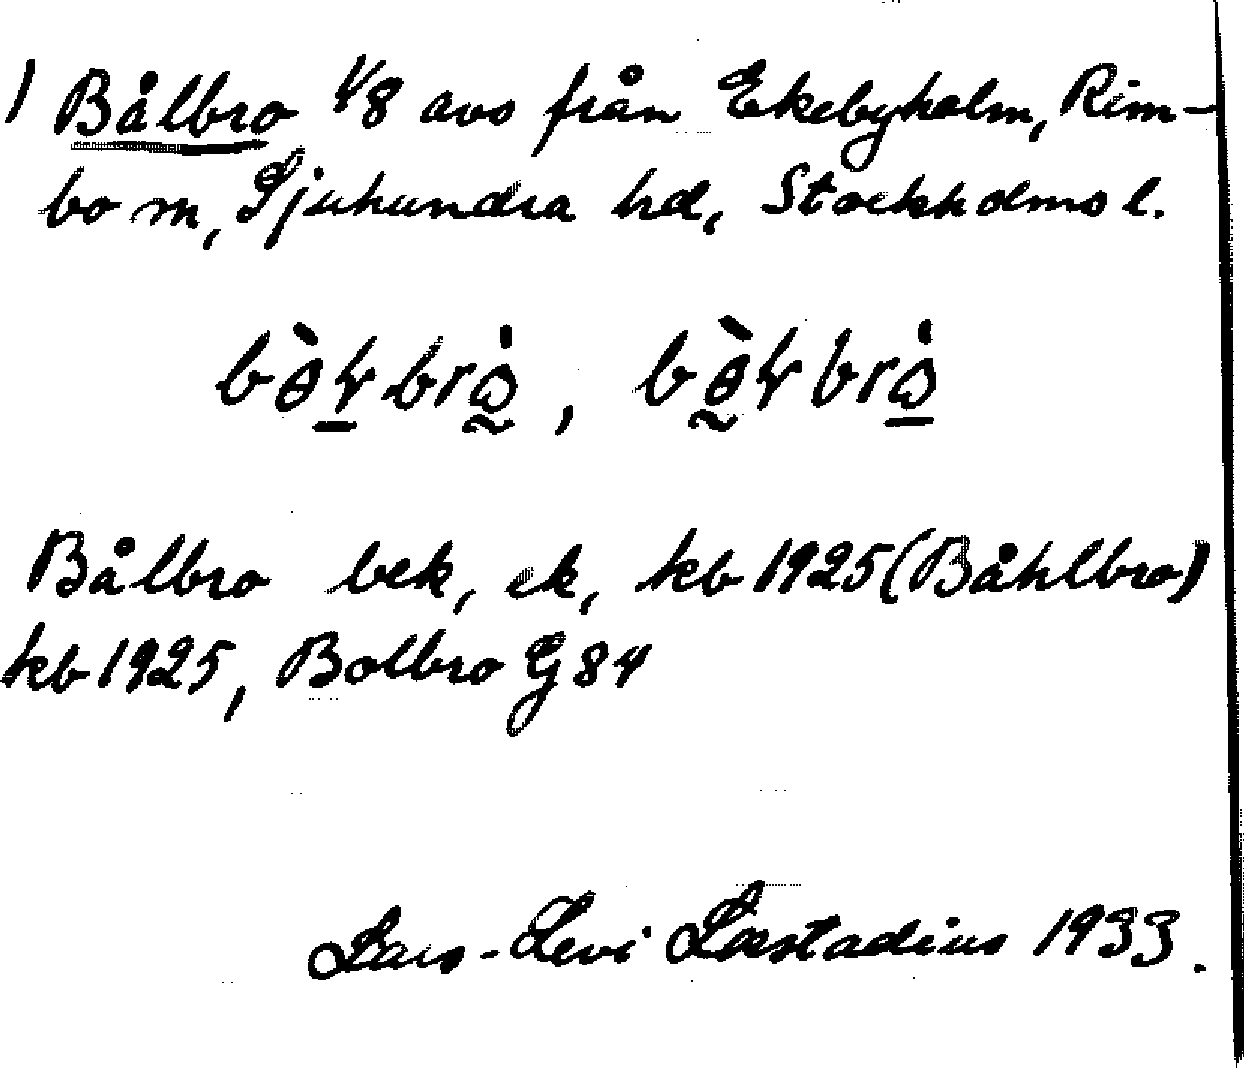 1 Bålbro 1/8 avs från Ekebyholm, Rim-
bo sn, Sjuhundra hd, Stockholms l.
Bålbro bek, ek, kb 1925 (Båhlbro)
kb 1925, Bolbro G 84
Lars-Levi Læstadius 1933.